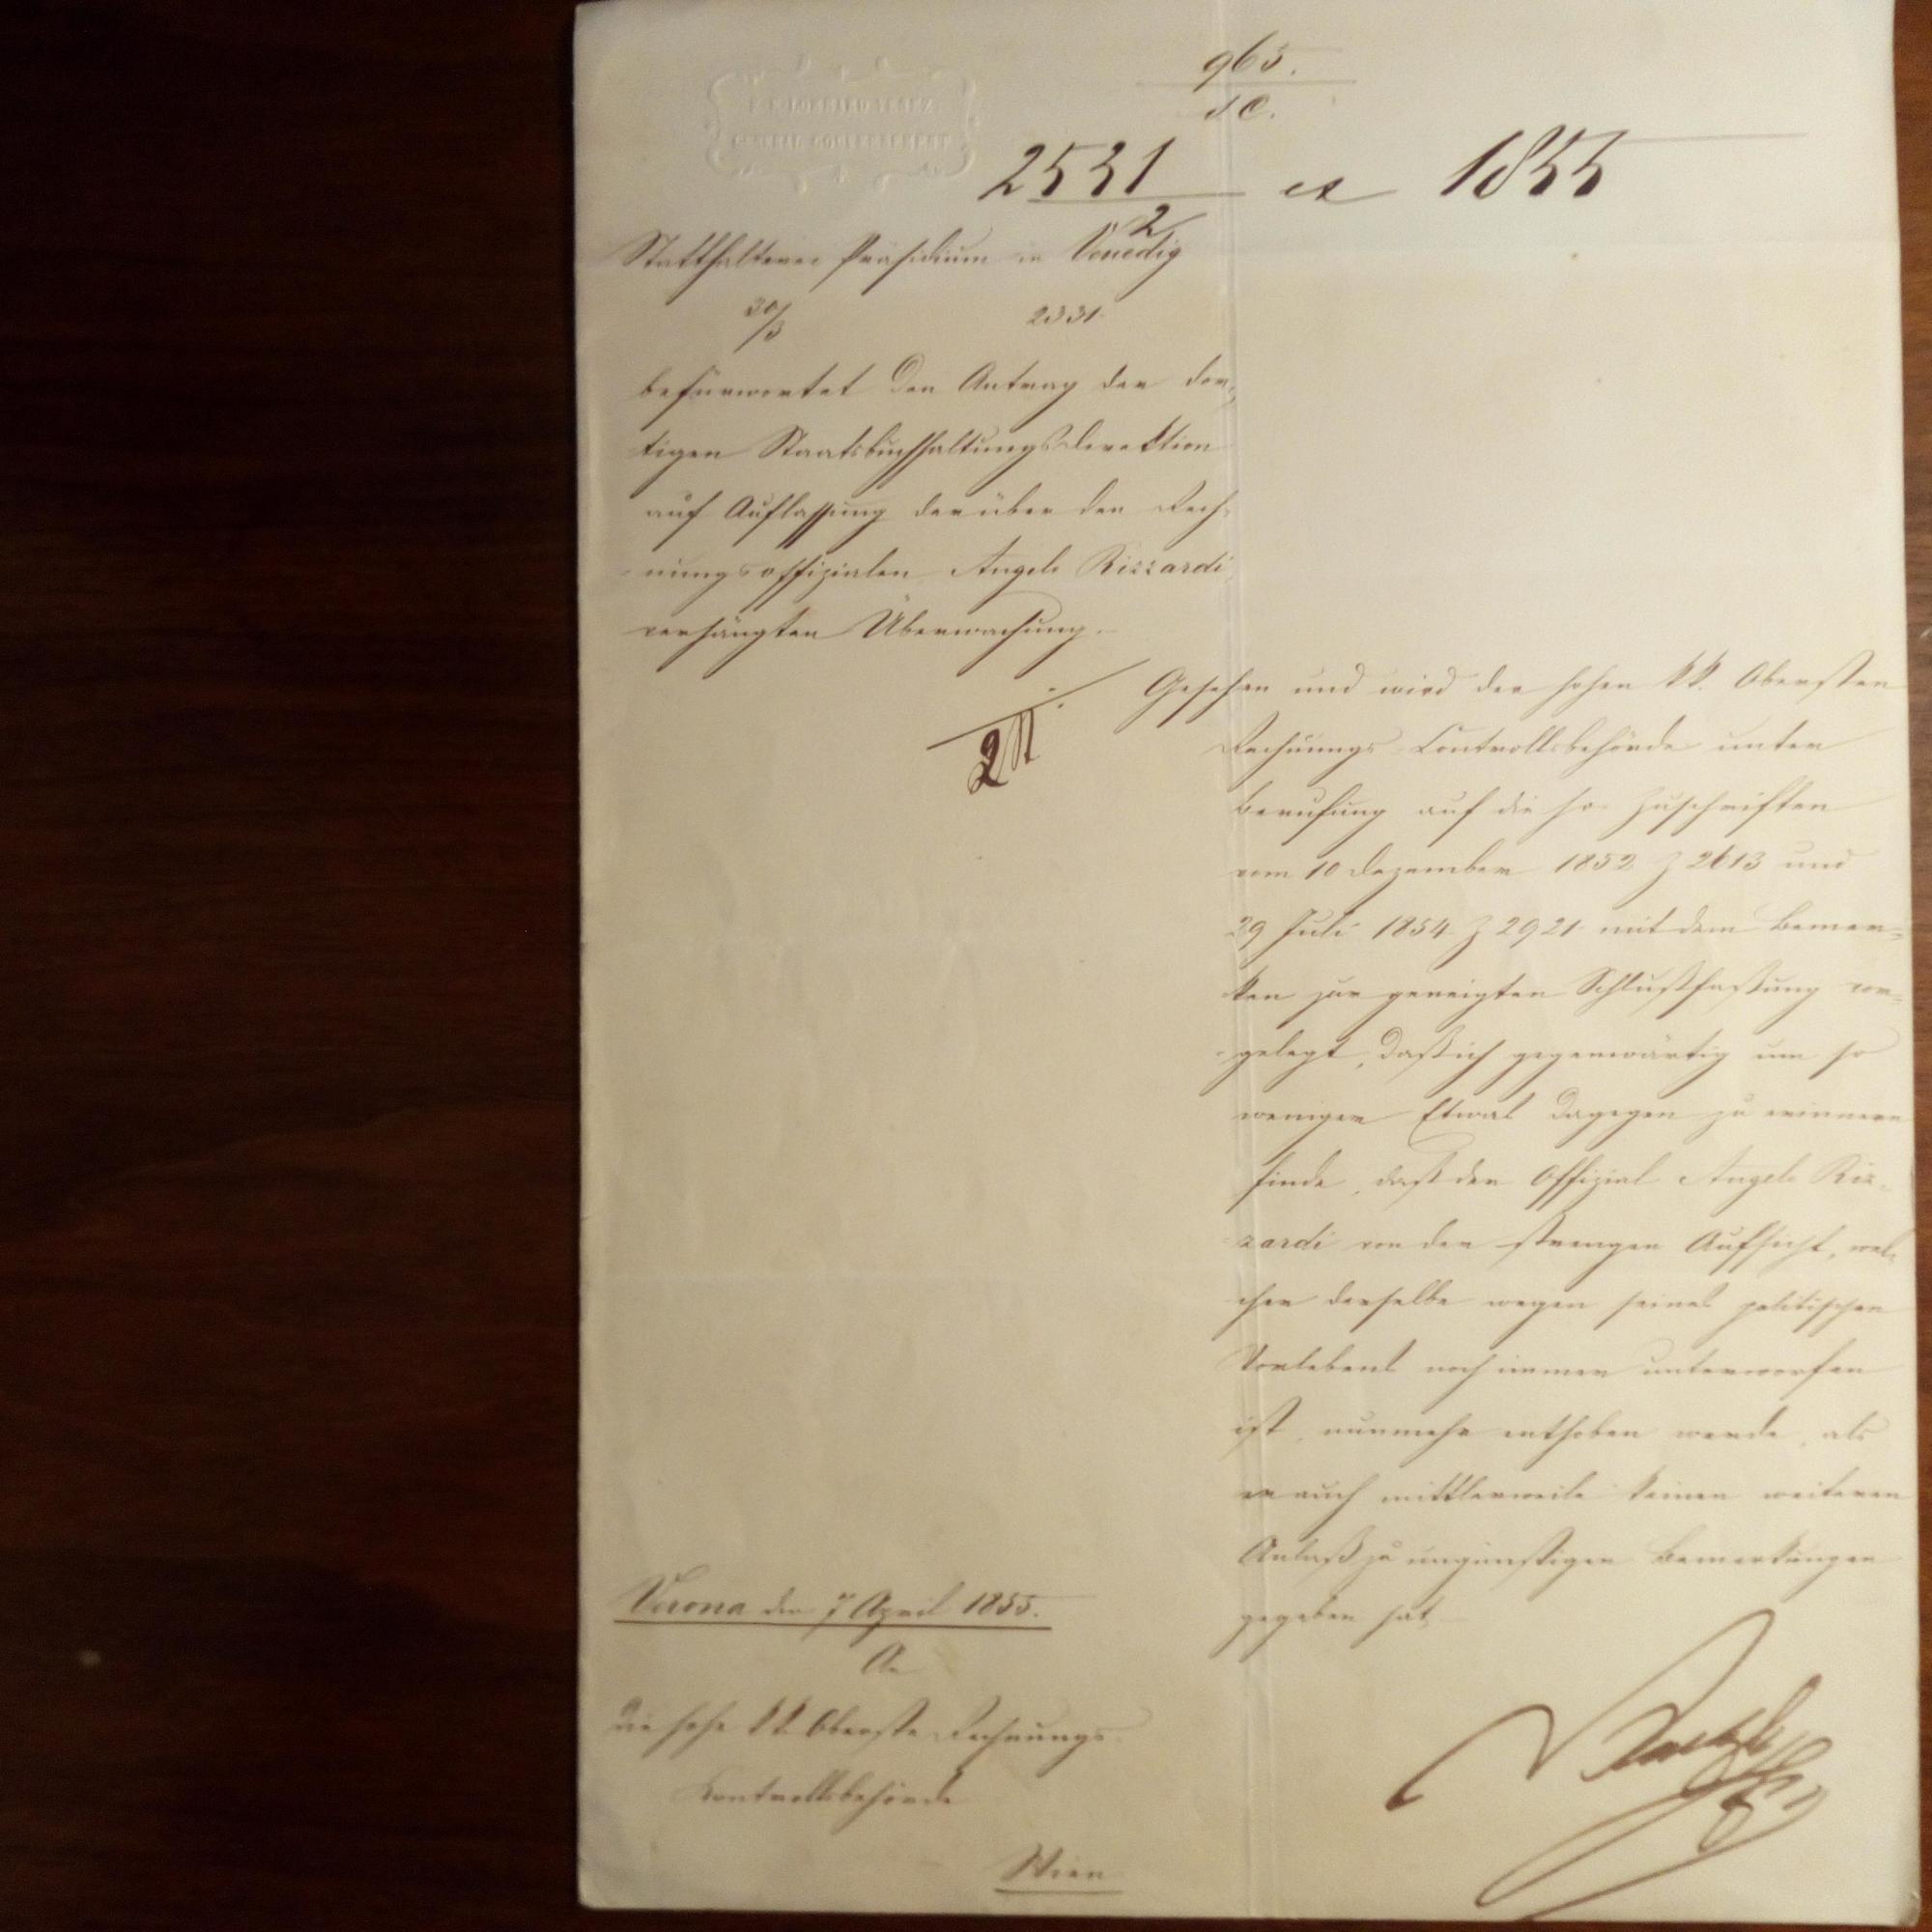 K.K. LOMBARD. VENEZ.
GENERAL GOUVERNEMENT
965.
2531 ex 1855
2
Statthalterei Präsidium in Venedig
30/3 2331
befürwortet den Antrag der dor-
tigen Staatsbuchhaltungsdirektion
auf Auflassung der über den Rech-
nungsoffizialen Angelo Rizzardi
verhängten Überwachung.
Gesehen und wird der hohen kk. Obersten
Rechnungs Controllsbehörde unter
Berufung auf die ho. Zuschriften
vom 10 Dezember 1852 Z 2613 und
29 Juli 1854 Z 2921 mit dem Bemer-
ken zur geneigten Schlußfaßung vor-
gelegt, daß ich gegenwärtig um so
weniger Etwas dagegen zu erinnern
finde, daß der Offizial Angelo Riz-
zardi von der strengen Aufsicht, wel-
cher derselbe wegen seines politischen
Vorlebens noch immer unterworfen
ist, nunmehr enthoben werde, als
er auch mittlerweile keinen weiteren
Anlaß zu ungünstigen Bemerkungen
gegeben hat.
Verona den 7 April 1855.
An
die hohe kk. Oberste Rechnungs-
Controllsbehörde
Wien